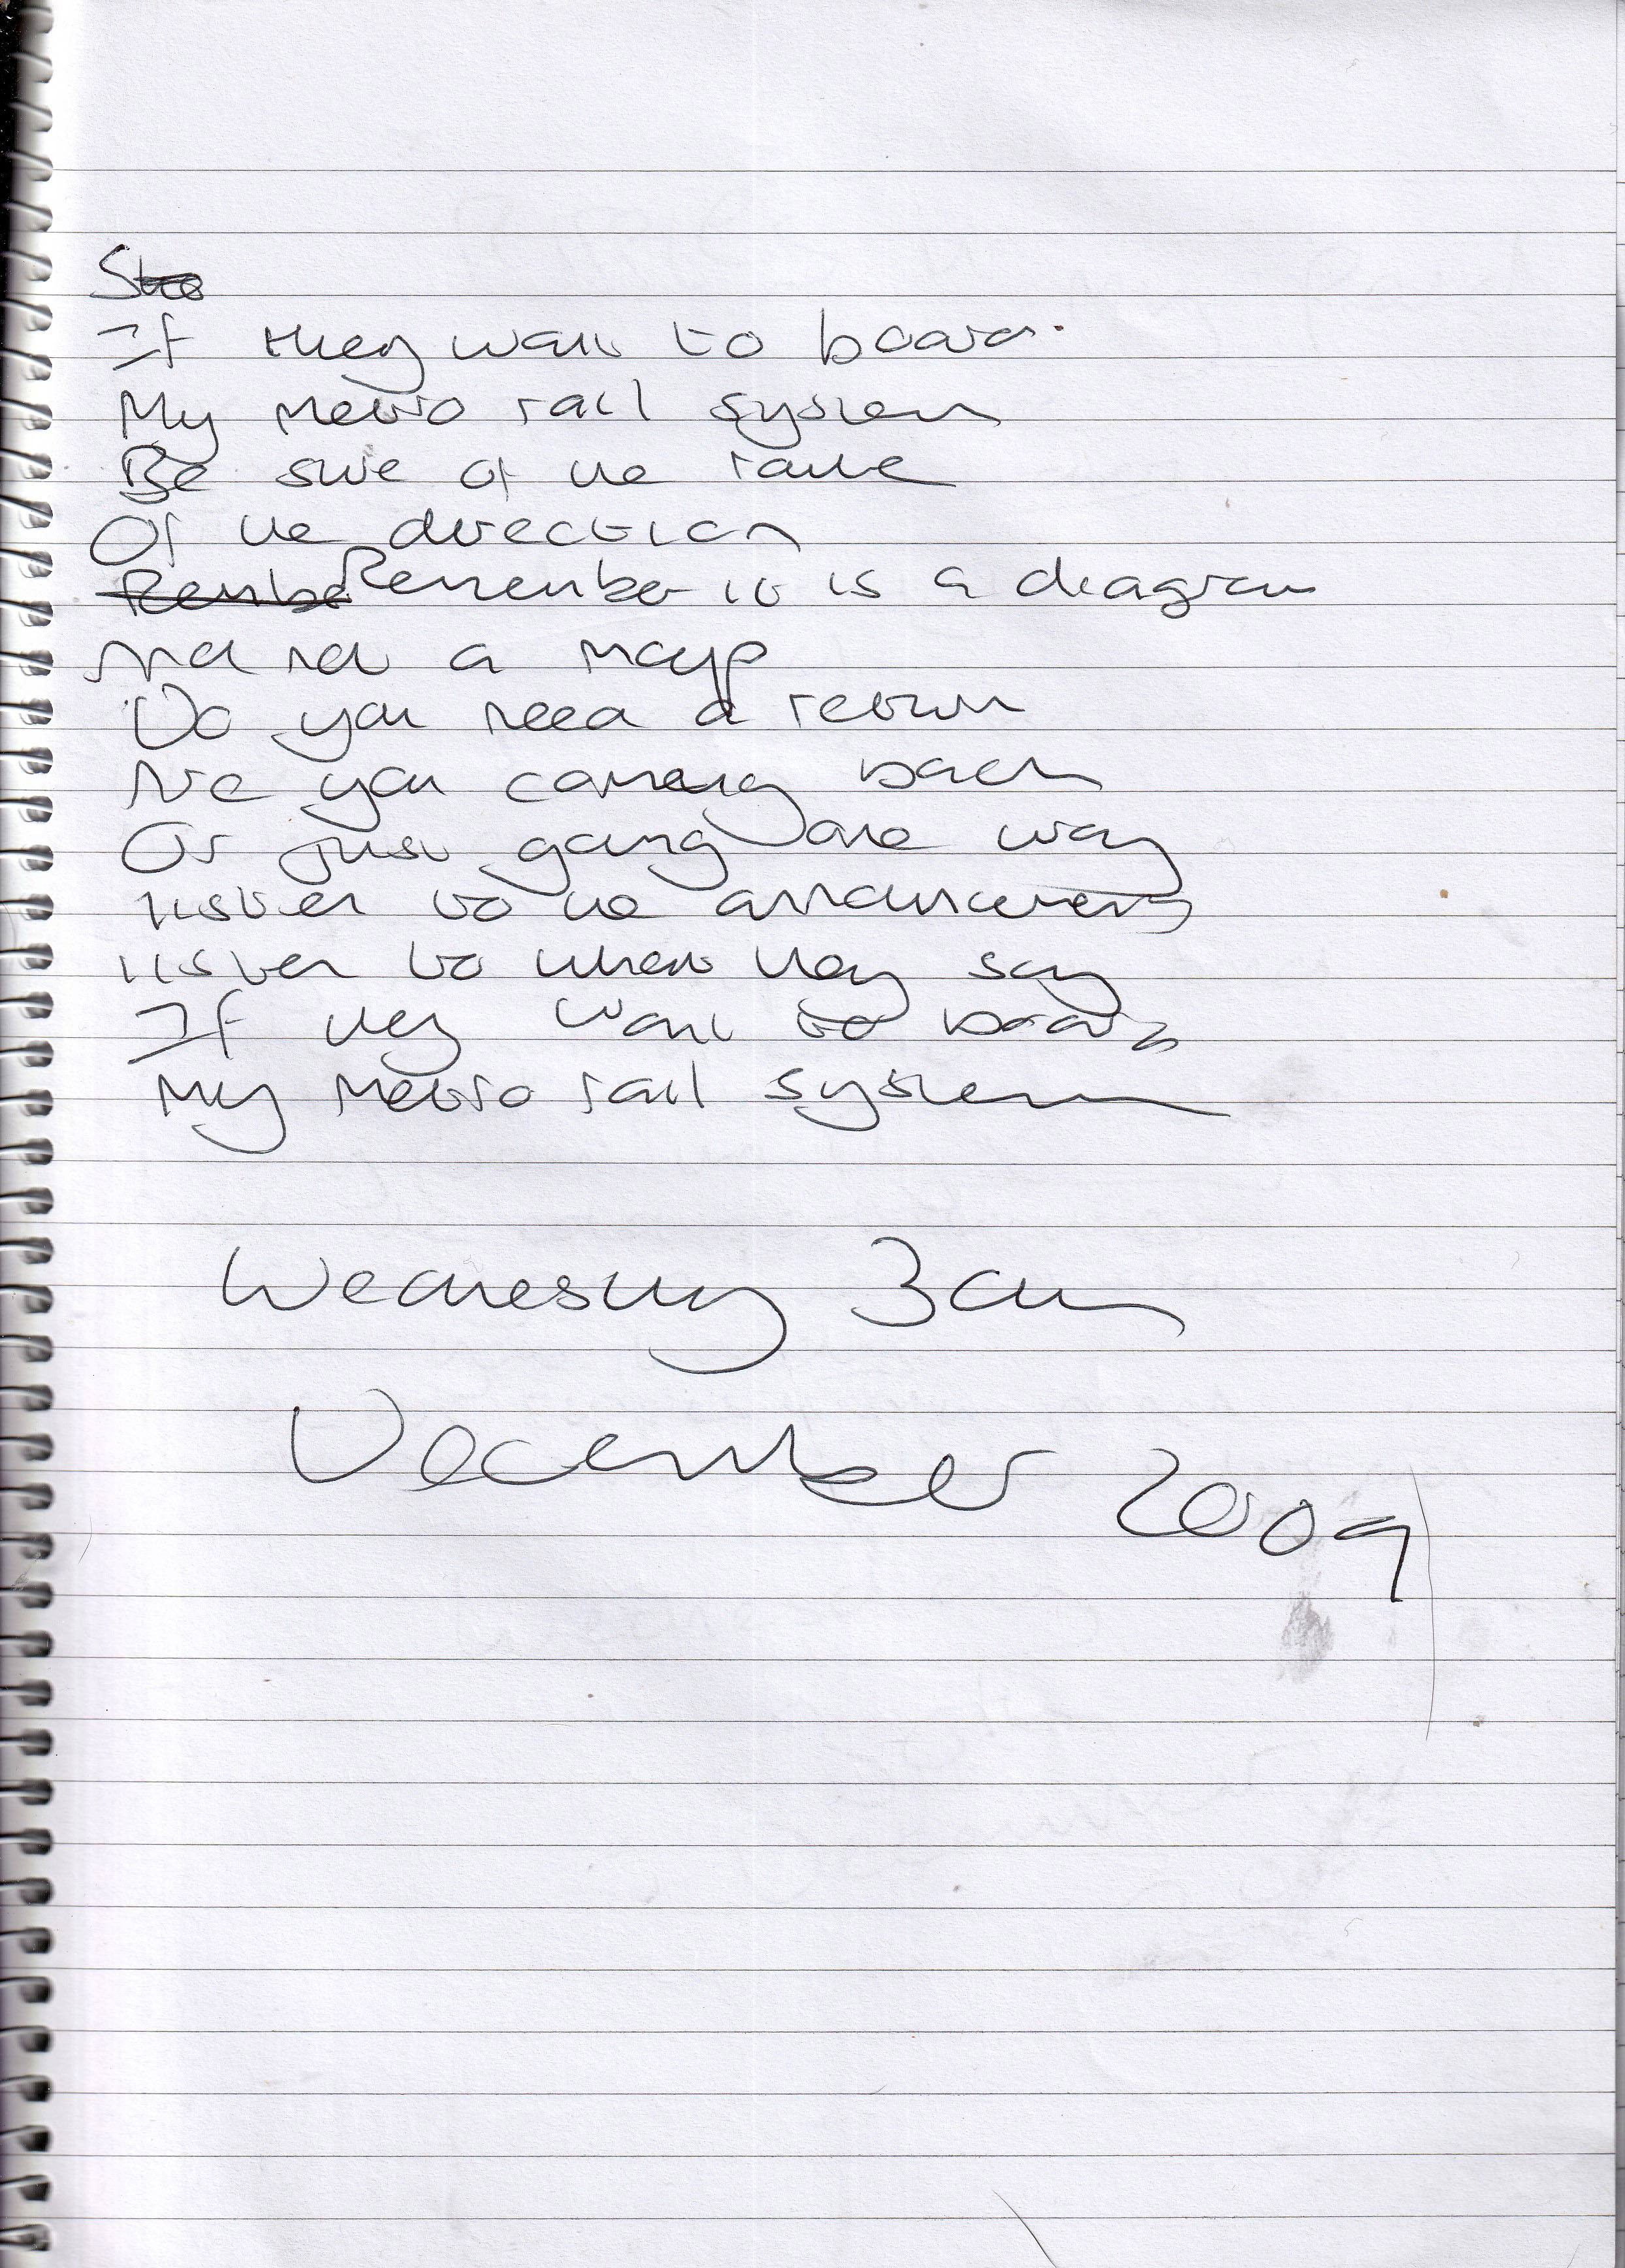 If they want to board
My Metro rail system
Be sure of the route
Of the direction
Remember it is a diagram
And not a map
Do you need a return
Are you coming back
Or just going one way
listen to the announcements
listen to what they say
If they want to board
My Metro rail system
Wednesday 3am
December 2009